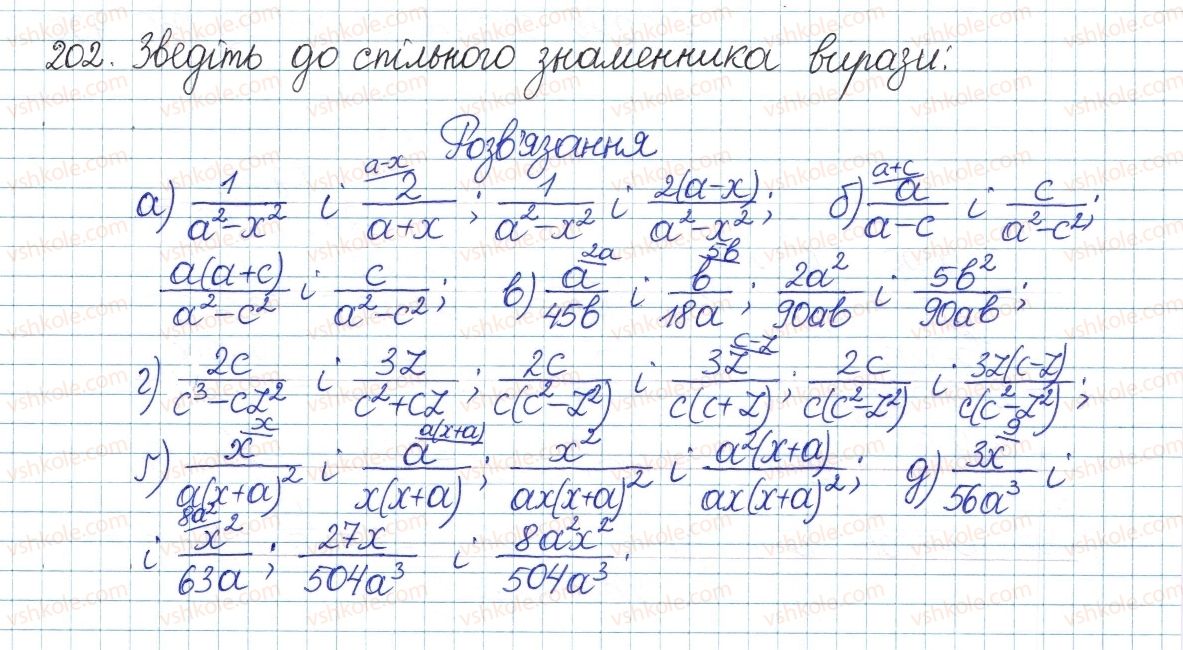 202. Зведіть до спільного знаменника вирази:
Розв'язання
а) 1/(a²-x²) і 2/(a+x) (a-x); 1/(a²-x²) і 2(a-x)/(a²-x²); б) a/(a-c) (a+c) і c/(a²-c²);
a(a+c)/(a²-c²) і c/(a²-c²); в) a/45b (2a) і b/18a (5b); 2a²/90ab і 5b²/90ab;
г) 2c/(c³-cz²) і 3z/(c²+cz); 2c/(c(c²-z²)) і 3z/(c(c+z)) (c-z); 2c/(c(c²-z²)) і 3z(c-z)/(c(c²-z²));
ґ) x/(a(x+a)²) (x) і a/(x(x+a)) (a(x+a)); x²/(ax(x+a)²) і a²(x+a)/(ax(x+a)²); д) 3x/56a³ (9) і
і x²/63a (8a²); 27x/504a³ і 8a²x²/504a³.